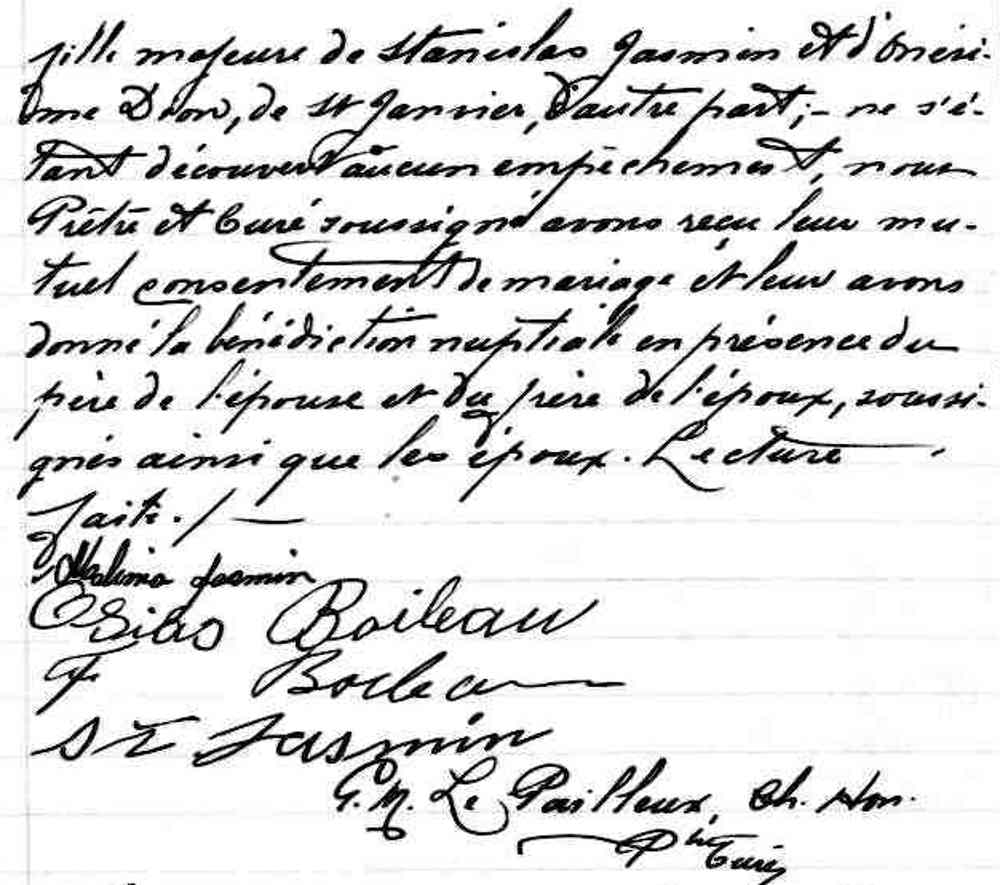 fille majeure de Stanislas Jasmin et d'Onési-
me Dion, de St Janvier, d'autre part;- ne s'é-
tant découvert aucun empêchement, nous
Prêtre et Curé soussigné avons reçu leur mu-
tuel consentement de mariage et leur avons
donné la bénédiction nuptiale en présence du
père de l'épouse et du frère de l'époux, soussi-
gnés ainsi que les époux. Lecture
faite./—
Malina Jasmin
Osias Boileau
F Boileau
St Jasmin
G. M. Le Pailleur, Ch. Hon.
Ptre Curé